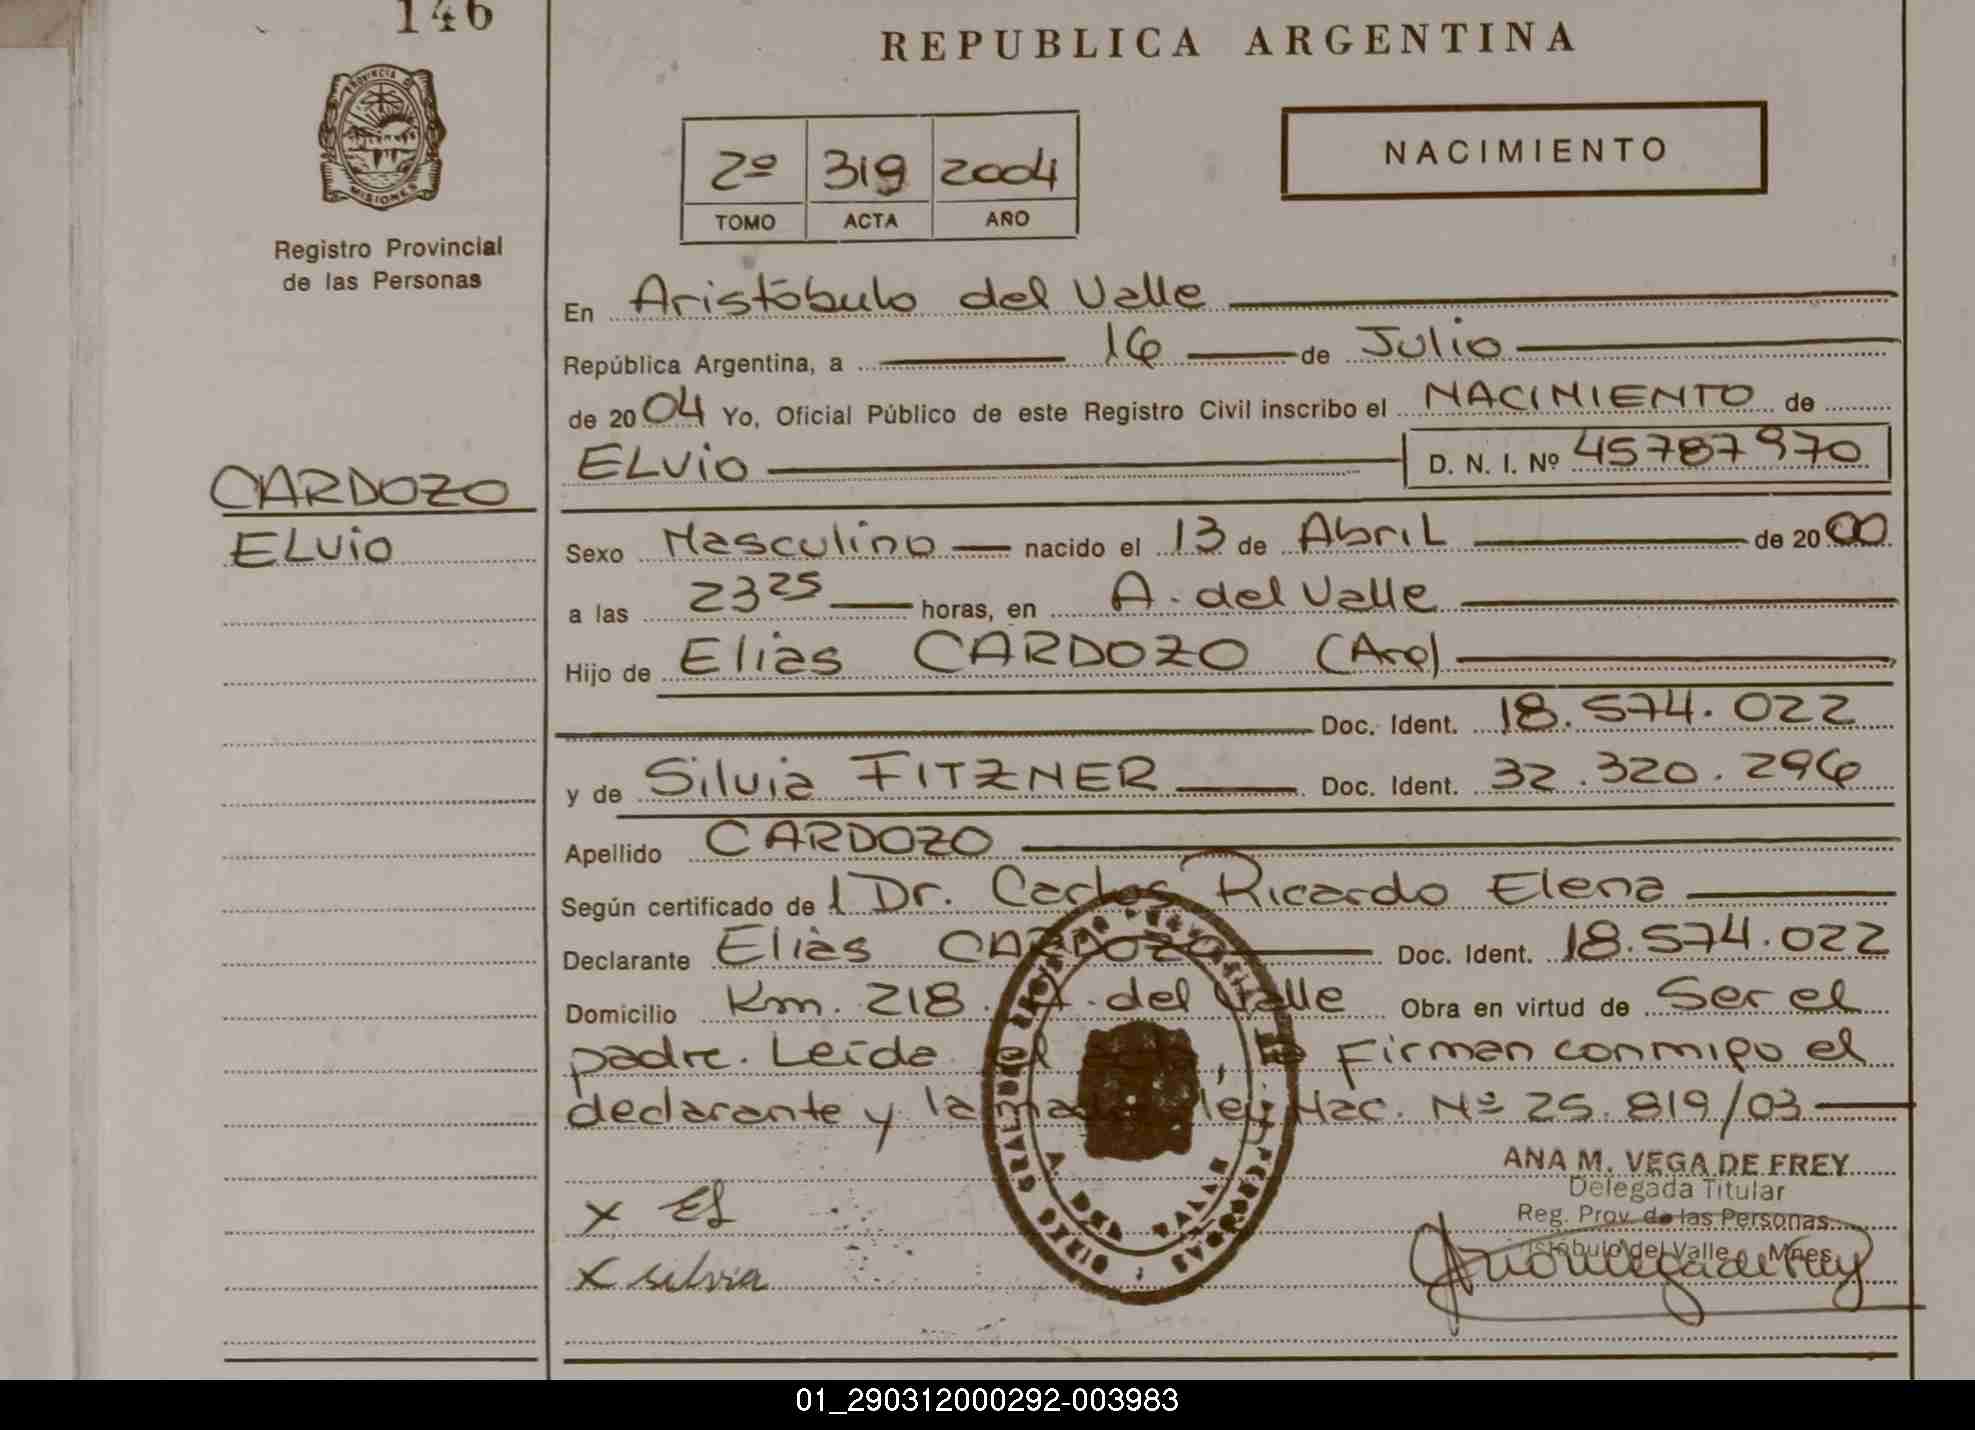 146
PROVINCIA DE
MISIONES
Registro Provincial
de las Personas
CARDOZO
ELVIO
REPUBLICA ARGENTINA
2º 319 2004
TOMO ACTA AÑO
NACIMIENTO
En Aristóbulo del Valle
República Argentina, a 16 de Julio
de 2004 Yo, Oficial Público de este Registro Civil inscribo el NACIMIENTO de
ELVIO D. N. I. Nº 45787970
Sexo Masculino nacido el 13 de Abril de 2000
a las 23 25 horas, en A. del Valle
Hijo de Elias CARDOZO (Arg)
Doc. Ident. 18.574.022
y de Silvia FITZNER Doc. Ident. 32.320.296
Apellido CARDOZO
Según certificado del Dr. Carlos Ricardo Elena
Declarante Elias CARDOZO Doc. Ident. 18.574.022
Domicilio Km. 218. A. del Valle Obra en virtud de Ser el
padre. Leída el , Firman conmigo el
declarante y la madre. Ley Nac. Nº 25.819/03
ANA M. VEGA DE FREY
Delegada Titular
Reg. Prov. de las Personas
istóbulo del Valle Mnes
X
X silvia
01_290312000292-003983